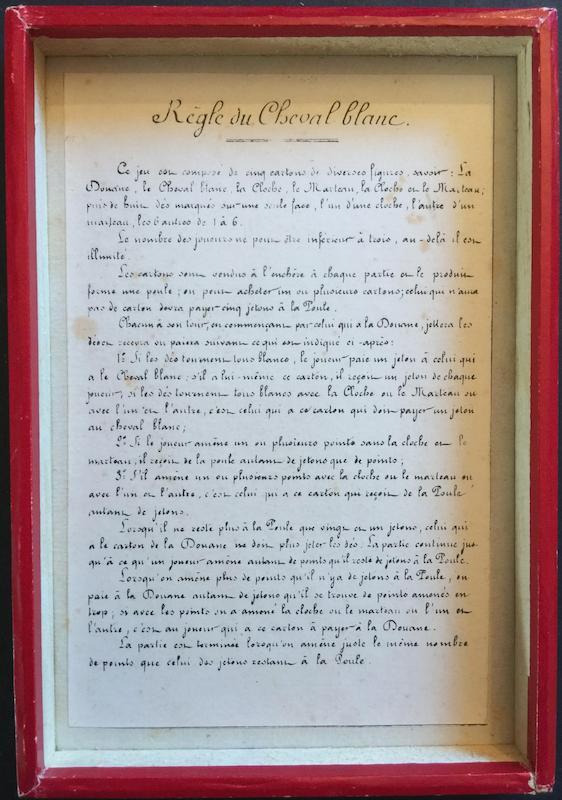 Règle du Cheval blanc.
Ce jeu est composé de cinq cartons de diverses figures, savoir : La
Douane, le Cheval blanc, la Cloche, le Marteau, la Cloche et le Marteau;
puis de huit dés marqués sur une seule face, l'un d'une cloche, l'autre d'un
marteau, les 6 autres de 1 à 6.
Le nombre des joueurs ne peut être inférieur à trois, au-delà il est
illimité.
Les cartons sont vendus à l'enchère à chaque partie et le produit
forme une poule; on peut acheter un ou plusieurs cartons; celui qui n'aura
pas de carton devra payer cinq jetons à la Poule.
Chacun à son tour, en commençant par celui qui a la Douane, jettera les
dés et recevra ou paiera suivant ce qui est indiqué ci-après:
1º Si les dés tournent tous blancs, le joueur paie un jeton à celui qui
a le Cheval blanc; s'il a lui-même ce carton, il reçoit un jeton de chaque
joueur; si les dés tournent tous blancs avec la Cloche ou le Marteau ou
avec l'un et l'autre, c'est celui qui a ce carton qui doit payer un jeton
au cheval blanc;
2º Si le joueur amène un ou plusieurs points sans la cloche et le
marteau, il reçoit de la poule autant de jetons que de points;
3º S'il amène un ou plusieurs points avec la cloche ou le marteau ou
avec l'un et l'autre, c'est celui qui a ce carton qui reçoit de la Poule
autant de jetons.
Lorsqu'il ne reste plus à la Poule que vingt et un jetons, celui qui
a le carton de la Douane ne doit plus jeter les dés. La partie continue jus-
qu'à ce qu'un joueur amène autant de points qu'il reste de jetons à la Poule.
Lorsqu'on amène plus de points qu'il n'y a de jetons à la Poule, on
paie à la Douane autant de jetons qu'il se trouve de points amenés en
trop; si avec les points on a amené la cloche ou le marteau ou l'un et
l'autre, c'est au joueur qui a ce carton à payer à la Douane.
La partie est terminée lorsqu'on amène juste le même nombre
de points que celui des jetons restant à la Poule.